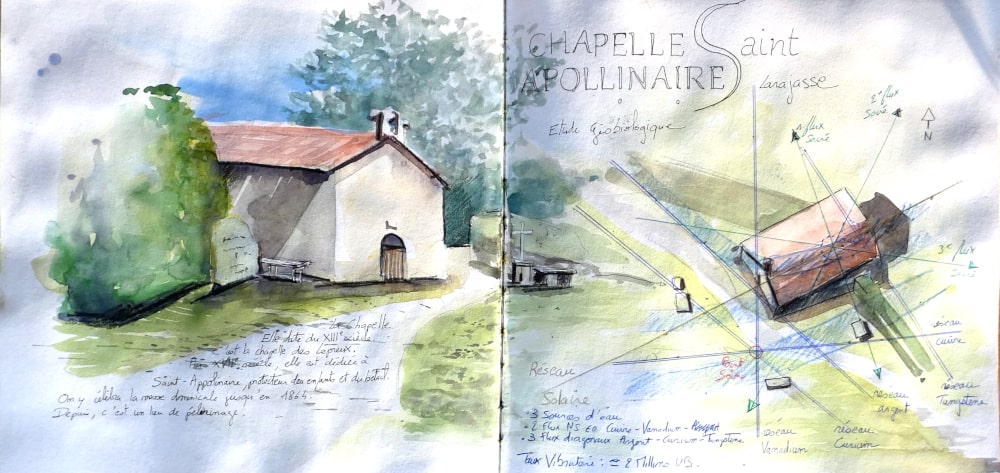 La Chapelle
Elle date du XIII° siècle
est la chapelle des Lépreux.
XVII° siècle, elle est dédiée à
Saint-Appolinaire, protecteur des enfants et du bétail.
On y célébra la messe dominicale jusqu'en 1865.
Depuis, c'est un lieu de pèlerinage.
CHAPELLE Saint
APOLLINAIRE
Larajasse
Etude Géobiologique
2° flux
Sacré
flux
Sacré
N
3° flux
Sacré
réseau
cuivre
réseau
Tungstène
réseau
argent
réseau
Curium
réseau
Vanadium
Sacré
Réseau
Solaire
3 Sources d'eau
• 2 Flux NS EO Cuivre - Vanadium - Argent
• 3 Flux diagonaux Argent - Curium - Tungstène
Taux Vibratoire : = 2 Millions UB.